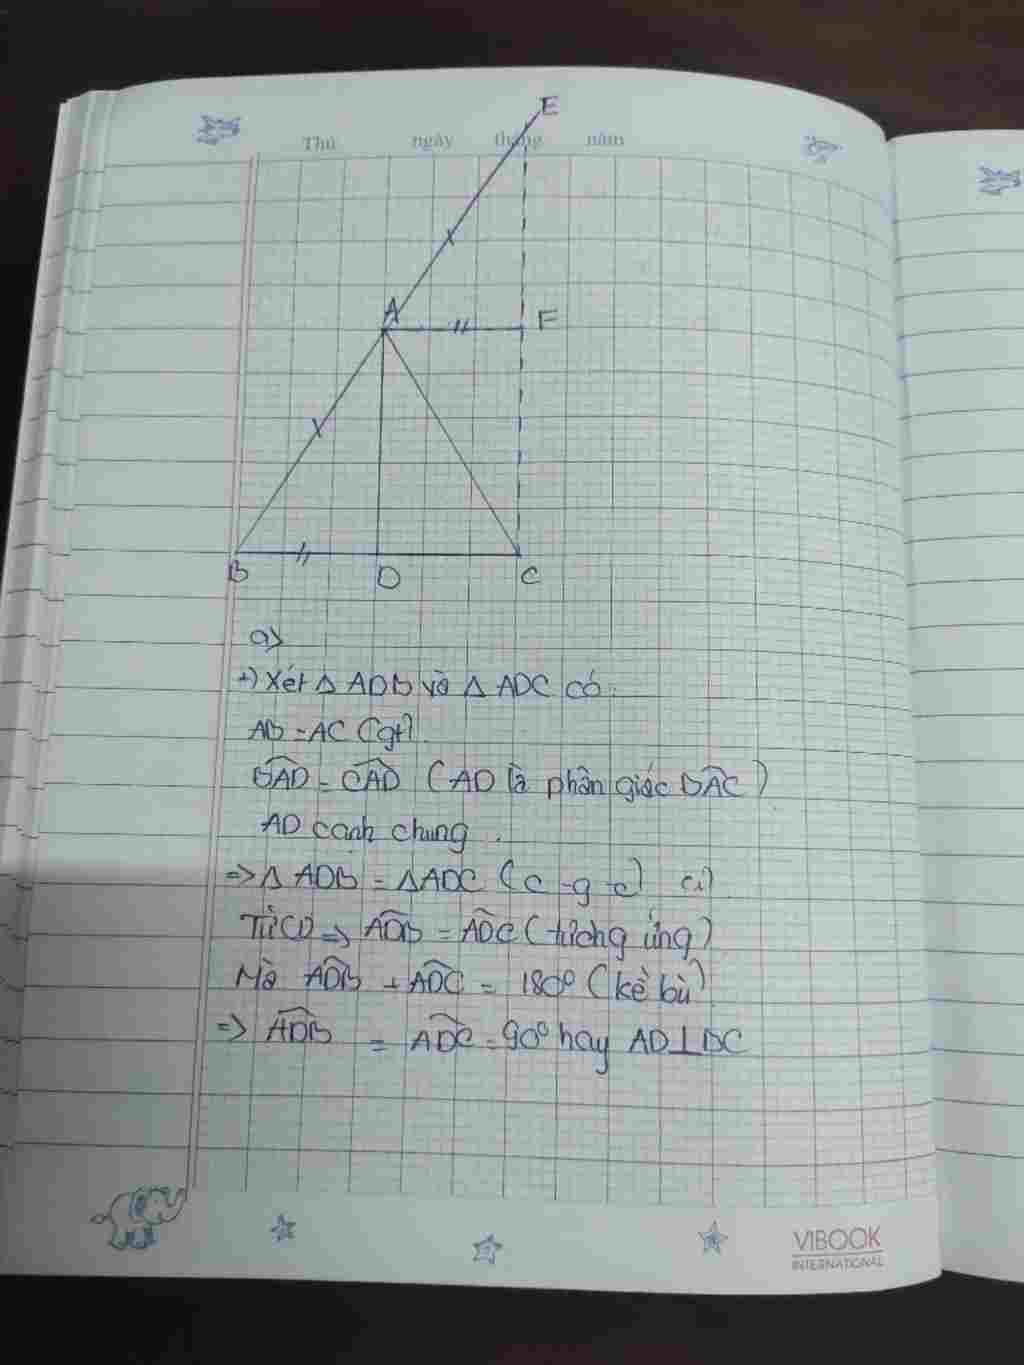 E
Thứ ngày tháng năm
A
F
B D C
a>
+) Xét △ ADB và △ ADC có:
AB = AC (gt).
BAD = CAD (AD là phân giác BAC)
AD cạnh chung.
=> △ ADB = △ADC (c-g-c) (1)
Từ (1) => ADB = ADC (tương ứng)
Mà ADB + ADC = 180° (kề bù)
=> ADB = ADC = 90° hay AD⊥DC
VIBOOK
INTERNATIONAL